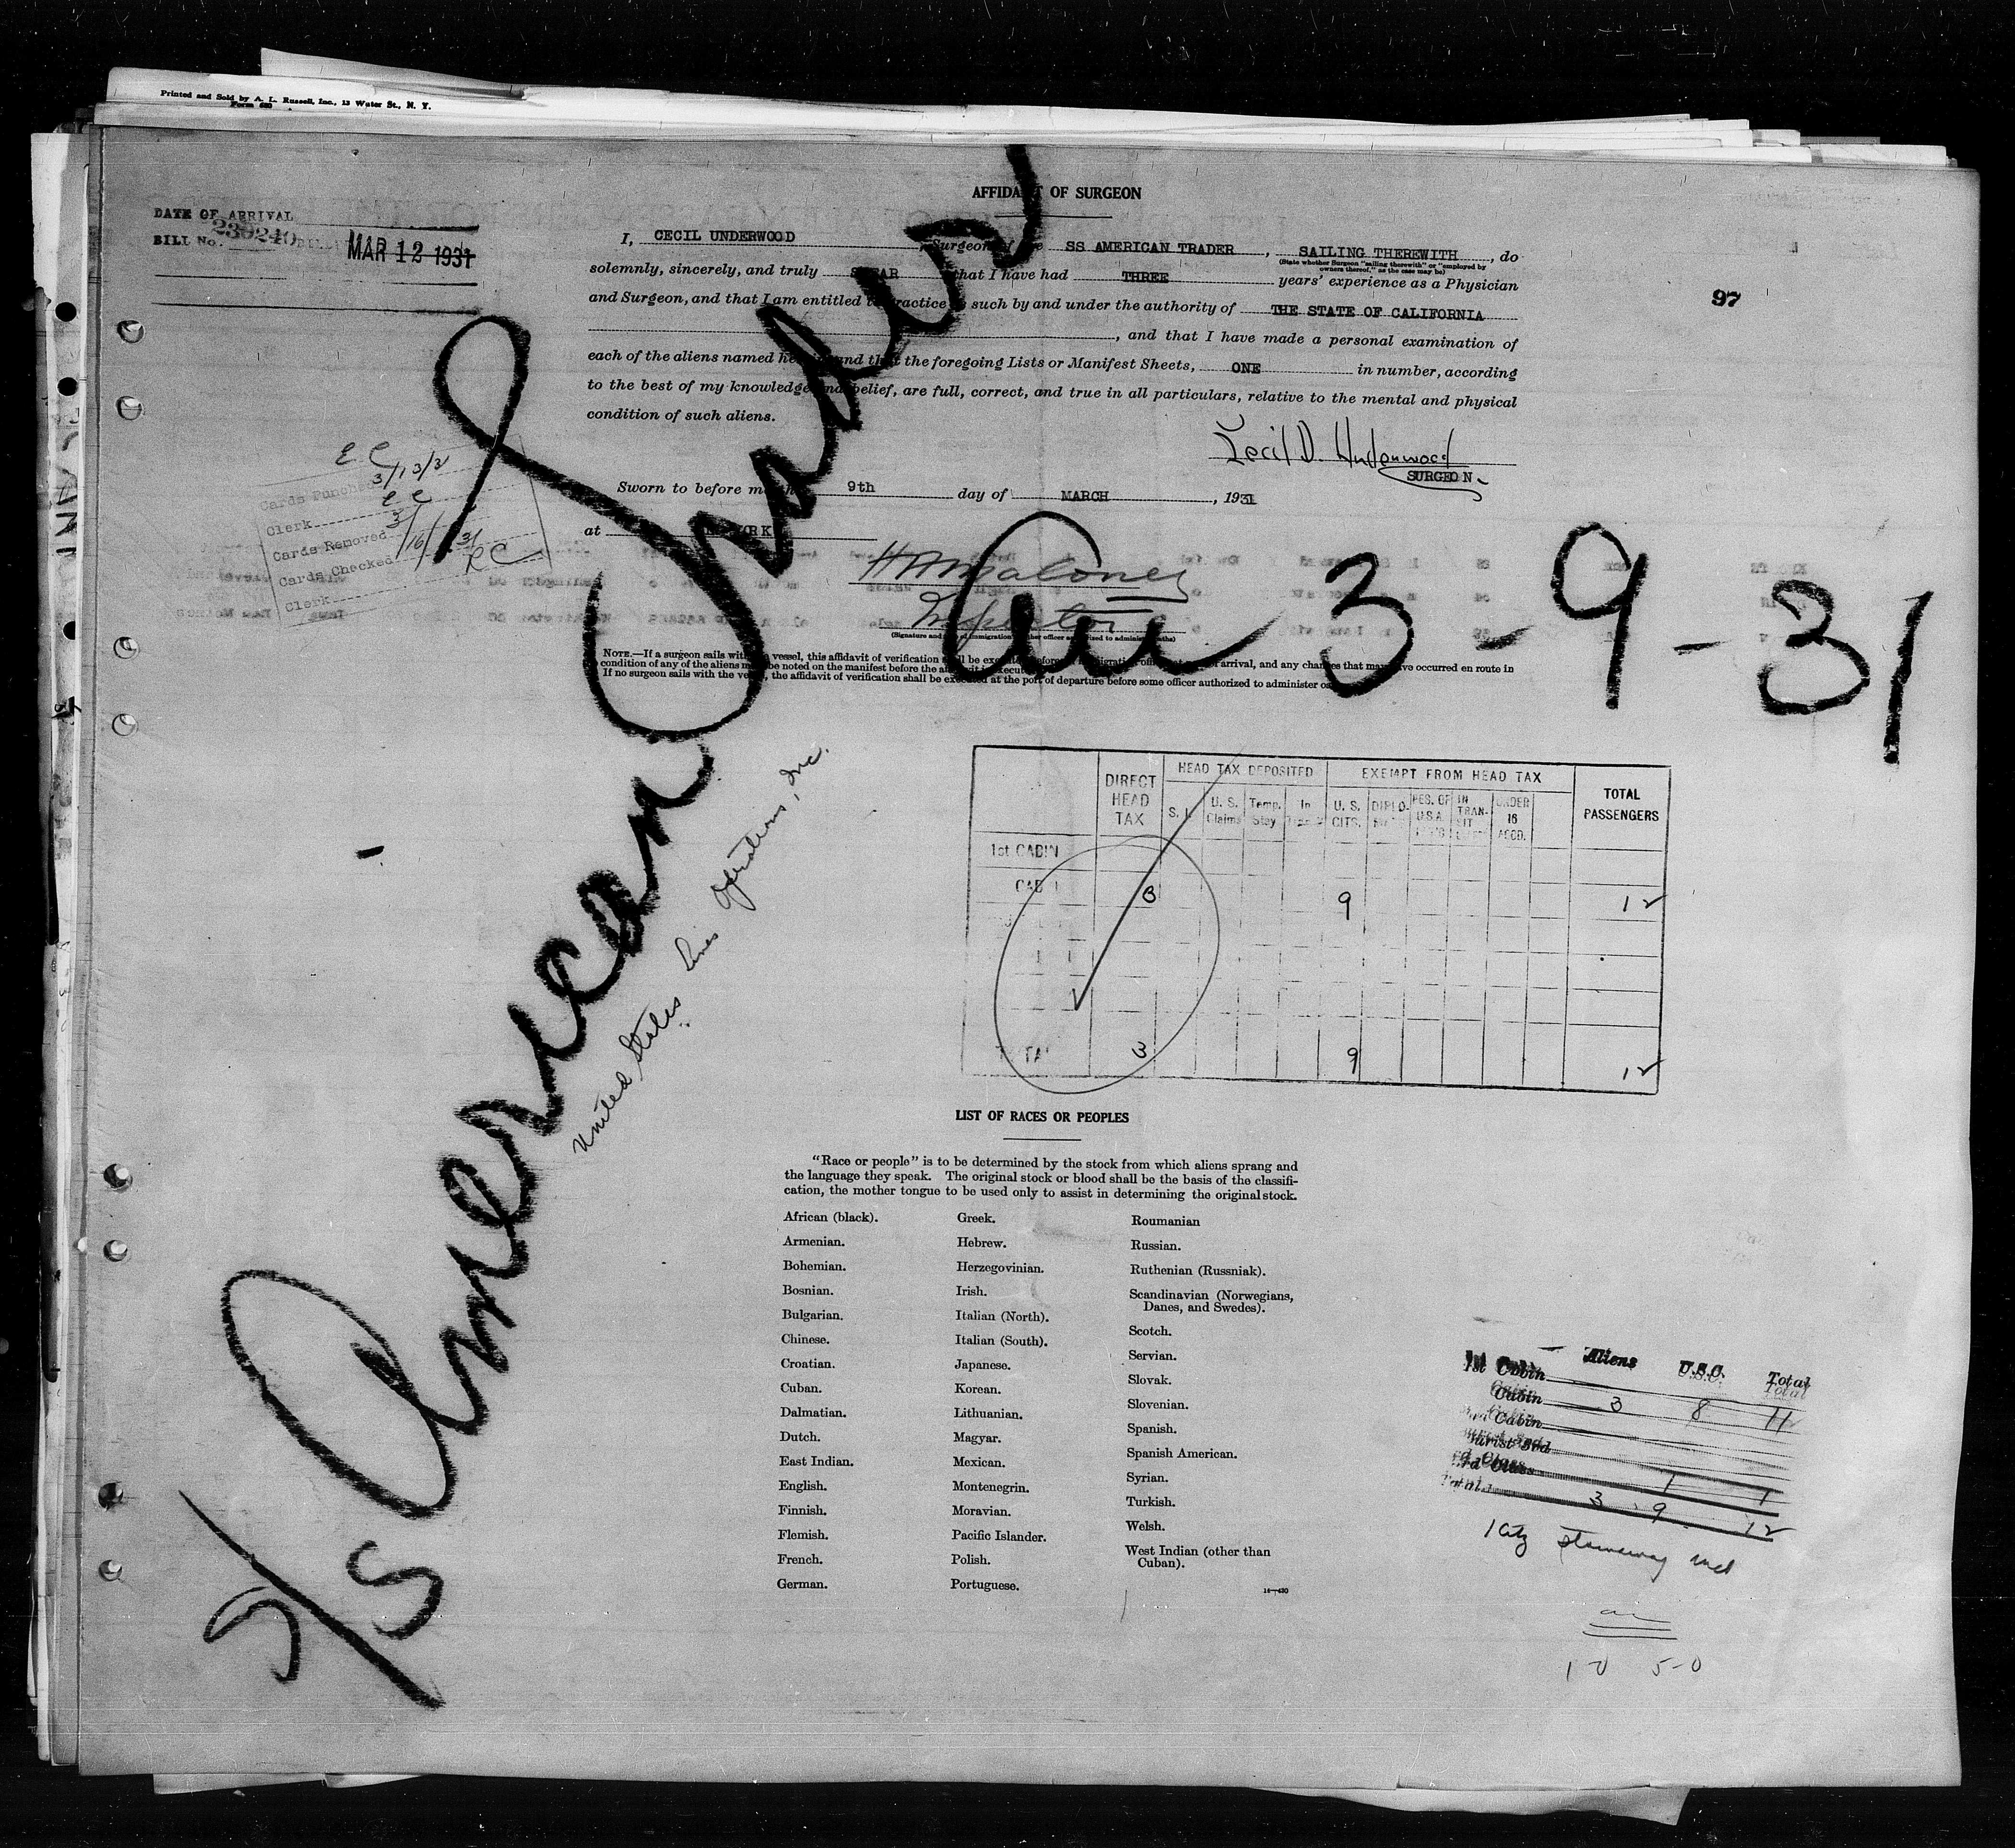 Printed and Sold by A. L. Russell, Inc., 13 Water St., N. Y.
Form 630
AFFIDAVIT OF SURGEON
DATE OF ARRIVAL
BILL No. 239240
MAR 12 1931
I, CECIL UNDERWOOD, Surgeon of the SS AMERICAN TRADER, SAILING THEREWITH, do
(State whether Surgeon "sailing therewith" or "employed by
owners thereof," as the case may be)
solemnly, sincerely, and truly SWEAR that I have had THREE years' experience as a Physician
and Surgeon, and that I am entitled to practice as such by and under the authority of THE STATE OF CALIFORNIA
97
, and that I have made a personal examination of
each of the aliens named herein and that the foregoing Lists or Manifest Sheets, ONE in number, according
to the best of my knowledge and belief, are full, correct, and true in all particulars, relative to the mental and physical
condition of such aliens.
Cecil D. Underwood
SURGEON.
Sworn to before me this 9th day of MARCH, 1931
at YORK
H A Maloney
Inspector
(Signature and title of immigration or other officer authorized to administer oaths)
E C
Cards Punched 3/13/31
Clerk E C
Cards Removed 3/16/31
Cards Checked
Clerk
NOTE.—If a surgeon sails with the vessel, this affidavit of verification shall be executed before the immigration officer at port of arrival, and any changes that may have occurred en route in
condition of any of the aliens must be noted on the manifest before the affidavit is executed.
If no surgeon sails with the vessel, the affidavit of verification shall be executed at the port of departure before some officer authorized to administer oaths.
S/S American Trader
Arr 3-9-31
United States Lines Operations, Inc.
DIRECT HEAD TAX
HEAD TAX DEPOSITED
EXEMPT FROM HEAD TAX
TOTAL PASSENGERS
S. I.
U. S. Claims
Temp. Stay
In Transit
U. S. CITS.
DIPLO-
RES. OF U.S.A.
IN TRAN-SIT
UNDER 16 ACCD.
1st CABIN
CABIN 3 9 12
TOTAL 3 9 12
LIST OF RACES OR PEOPLES
"Race or people" is to be determined by the stock from which aliens sprang and
the language they speak. The original stock or blood shall be the basis of the classifi-
cation, the mother tongue to be used only to assist in determining the original stock.
African (black).
Armenian.
Bohemian.
Bosnian.
Bulgarian.
Chinese.
Croatian.
Cuban.
Dalmatian.
Dutch.
East Indian.
English.
Finnish.
Flemish.
French.
German.
Greek.
Hebrew.
Herzegovinian.
Irish.
Italian (North).
Italian (South).
Japanese.
Korean.
Lithuanian.
Magyar.
Mexican.
Montenegrin.
Moravian.
Pacific Islander.
Polish.
Portuguese.
Roumanian
Russian.
Ruthenian (Russniak).
Scandinavian (Norwegians,
Danes, and Swedes).
Scotch.
Servian.
Slovak.
Slovenian.
Spanish.
Spanish American.
Syrian.
Turkish.
Welsh.
West Indian (other than
Cuban).
14—430
Aliens U.S.C. Total
1st Cabin
Cabin 3 8 11
Cabin
Tourist 3rd
3rd Class 1 1
Total 3 9 12
1 City stowaway incl
10 50